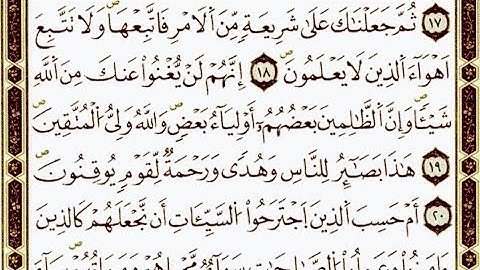 ١٧ ثُمَّ جَعَلْنَٰكَ عَلَىٰ شَرِيعَةٍ مِّنَ ٱلْأَمْرِ فَٱتَّبِعْهَا وَلَا تَتَّبِعْ
أَهْوَآءَ ٱلَّذِينَ لَا يَعْلَمُونَ ١٨ إِنَّهُمْ لَن يُغْنُوا۟ عَنكَ مِنَ ٱللَّهِ
شَيْـًٔا وَإِنَّ ٱلظَّٰلِمِينَ بَعْضُهُمْ أَوْلِيَآءُ بَعْضٍ وَٱللَّهُ وَلِىُّ ٱلْمُتَّقِينَ
١٩ هَٰذَا بَصَٰٓئِرُ لِلنَّاسِ وَهُدًى وَرَحْمَةٌ لِّقَوْمٍ يُوقِنُونَ
٢٠ أَمْ حَسِبَ ٱلَّذِينَ ٱجْتَرَحُوا۟ ٱلسَّيِّـَٔاتِ أَن نَّجْعَلَهُمْ كَٱلَّذِينَ